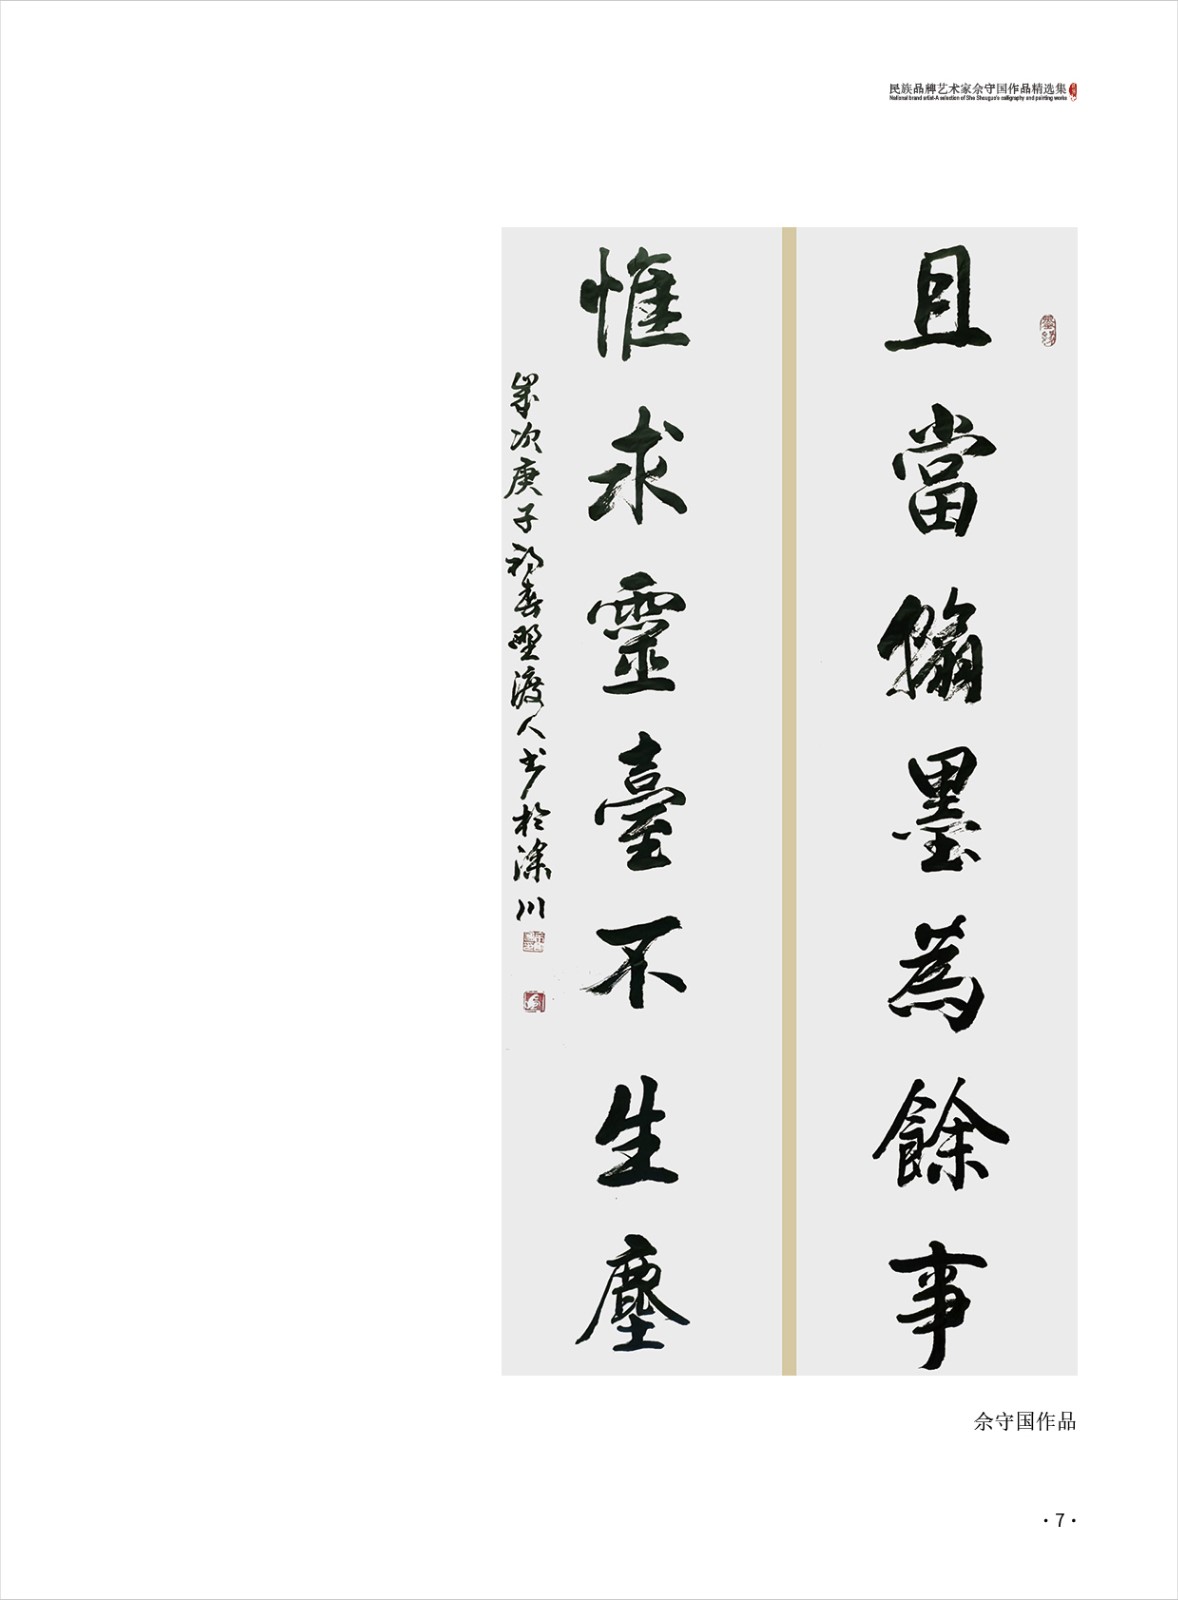 民族品牌艺术家佘守国作品精选集
National brand artist-A selection of She Shouguo's calligraphy and painting works
且當翰墨為餘事
惟求靈臺不生塵
歲次庚子初春野渡人书於深川
佘守国作品
·7·